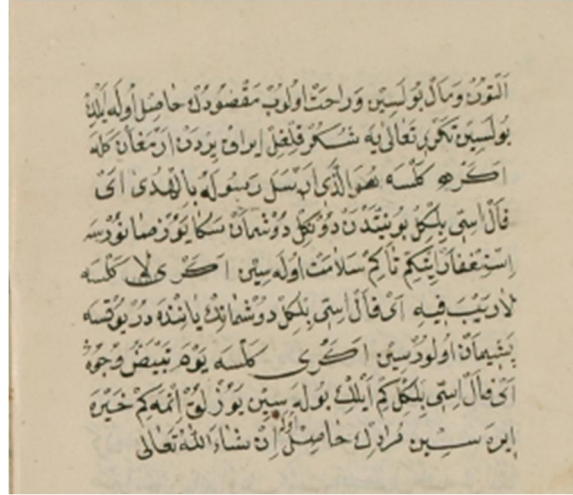 التون و مال بولسین و راحت اولوب مقصودك حاصل اوله یلك
بولسین تکری تعالی یه شکر قلغل ایراق یردن ارمغان کله
اکر ه کلسه هو الذی ارسل رسوله بالهدی ای
فال اسی بلکل بو نیتدن دونکل دوشمان سکا یوز صانورسه
استغفار ایتکم تا کم سلامت اوله سین اکر ی لا کلسه
لا ریب فیه ای فال اسی بلکل دوشمانك یاننده در یوقسه
پشیمان اولورسین اکر ی کلسه یوم تبیض وجوه
ای فال اسی بلکل کم ایلك بوله سین یوزلق اتمه کم خیره
ایره سین مرادك حاصل اوله ان شاء الله تعالی